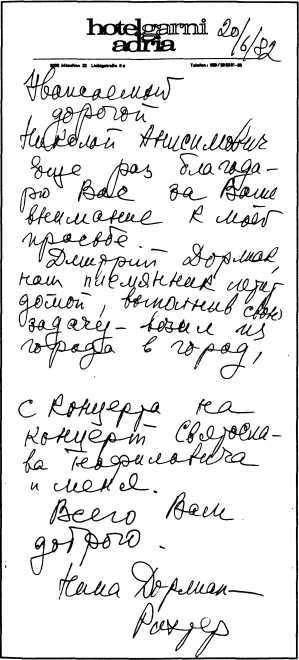 hotel garni
adria
20/6/82
8000 München 22 Liebigstraße 8a
Telefon:
Уважаемый
дорогой
Николай Анисимович
Еще раз благода-
рю Вас за Ваше
внимание к моей
просьбе.
Дмитрий Дорлиак,
наш племянник летит
домой, выполнив свою
задачу – возил из
города в город,
с концерта на
концерт Святосла-
ва Теофиловича
и меня.
Всего Вам
доброго.
Нина Дорлиак–
Рихтер